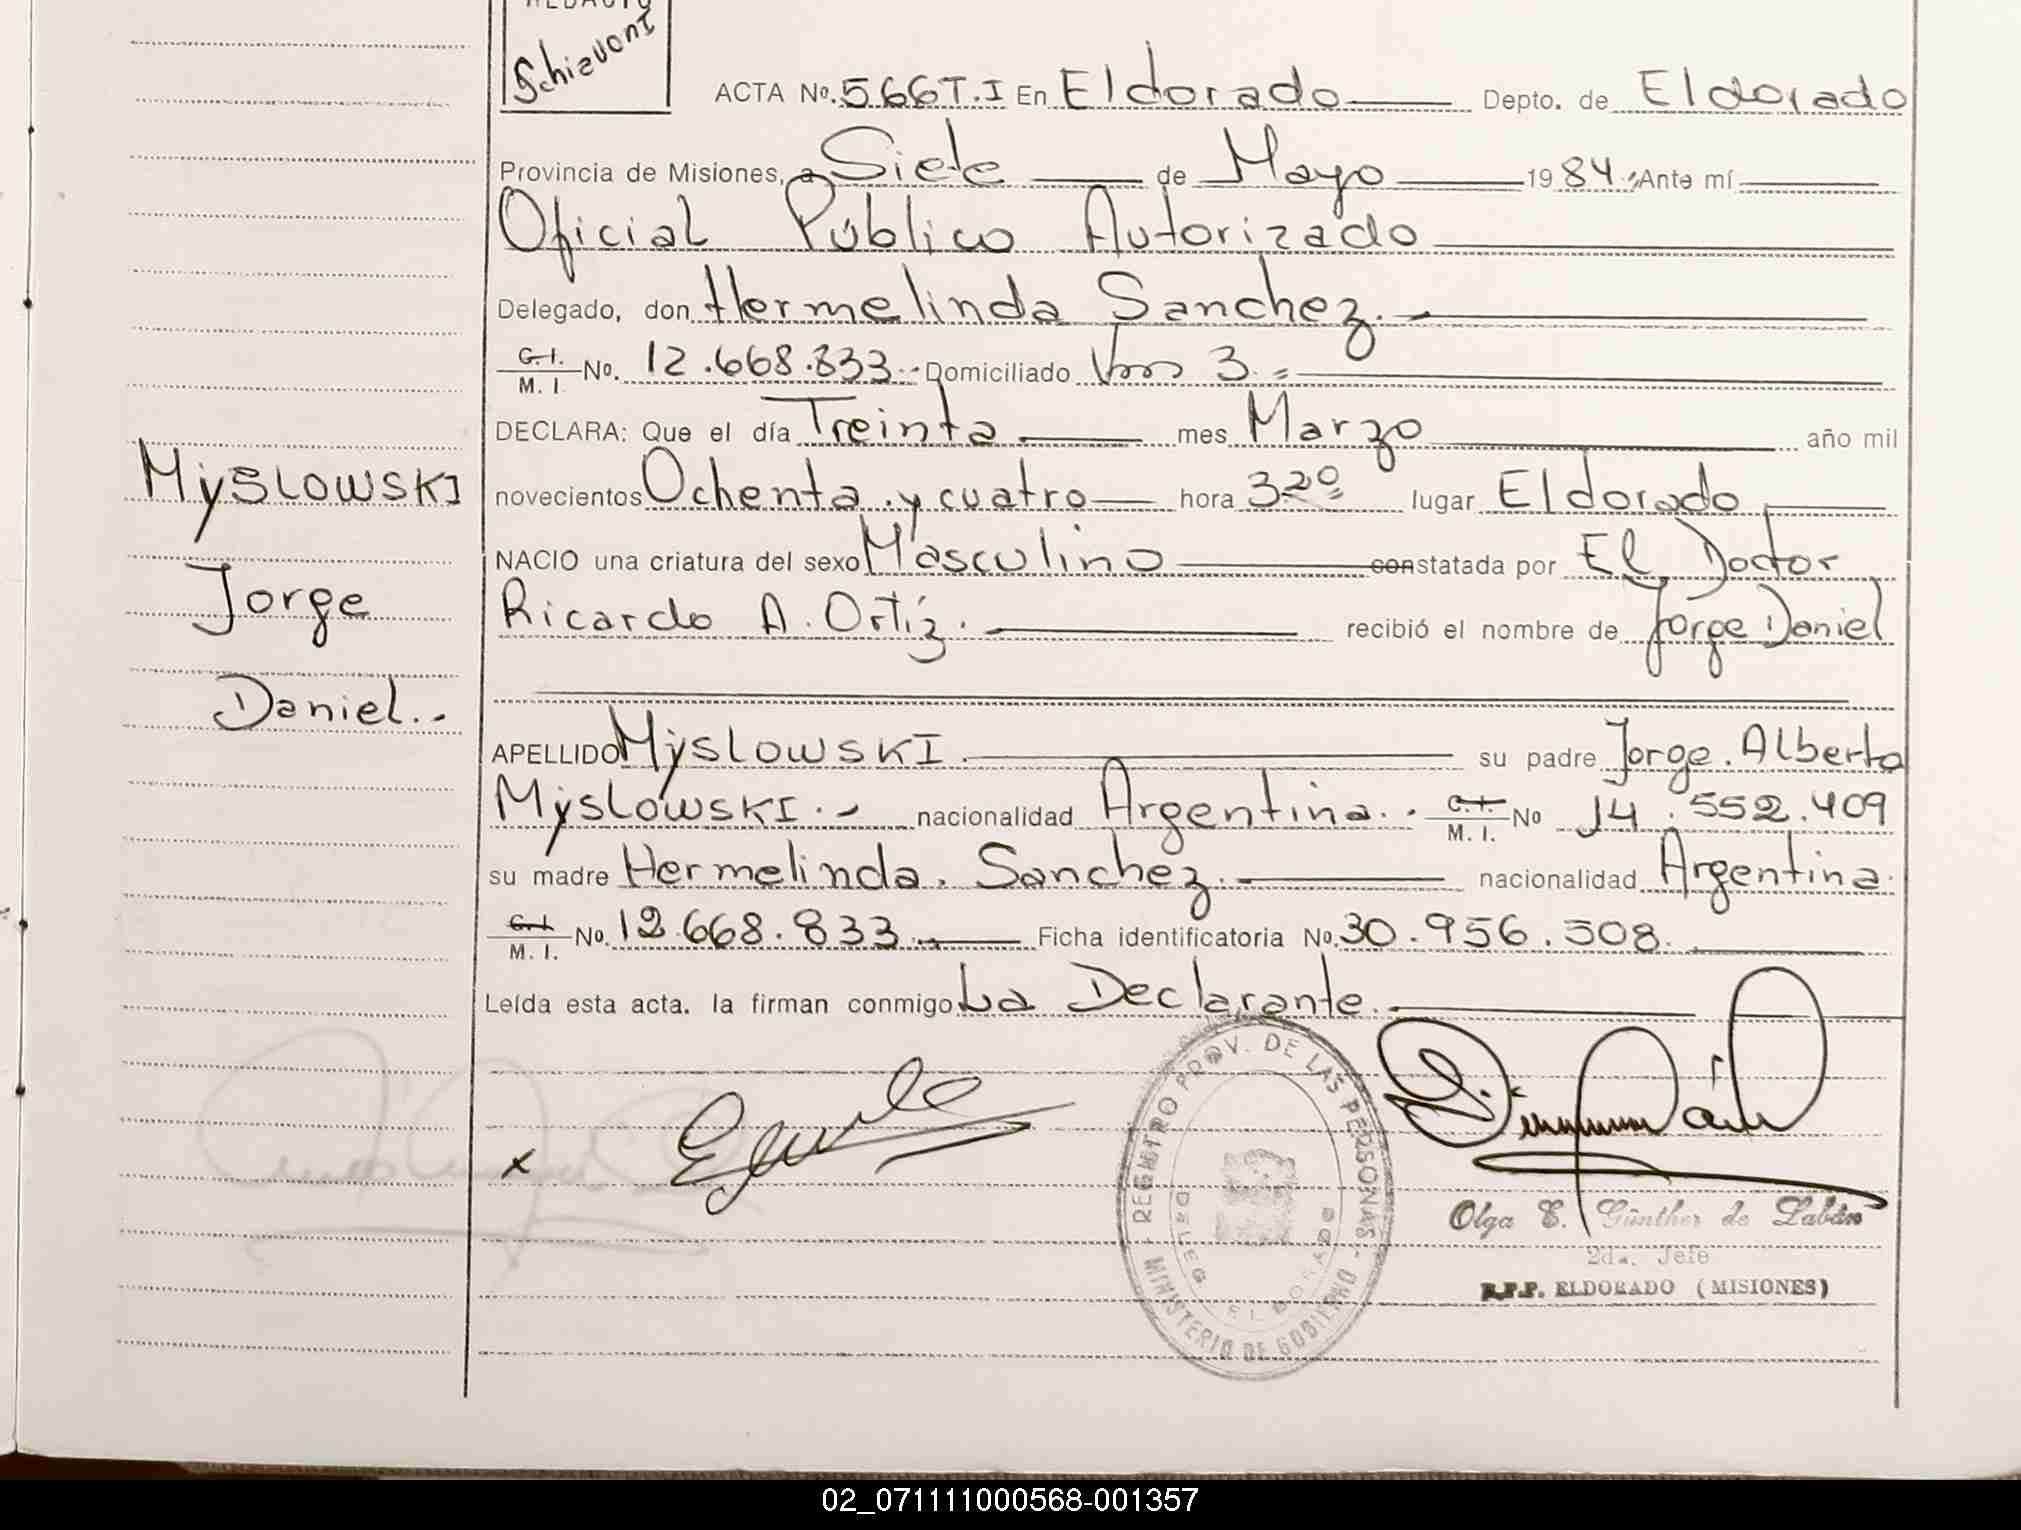 REDACTO
Schiavoni
ACTA No. 566 T. I En Eldorado Depto. de Eldorado
Provincia de Misiones, a Siete de Mayo 1984, Ante mí
Oficial Público Autorizado
Delegado, don Hermelinda Sanchez.
C. I.
M. I. No. 12.668.833 Domiciliado Km 3.
DECLARA: Que el día Treinta mes Marzo año mil
novecientos Ochenta y cuatro hora 3²⁰ lugar Eldorado
NACIO una criatura del sexo Masculino constatada por El Doctor
Ricardo A. Ortíz. recibió el nombre de Jorge Daniel
APELLIDO Myslowski su padre Jorge Alberto
Myslowski.- nacionalidad Argentina. C. I.
M. I. No 14.552.409
su madre Hermelinda Sanchez. nacionalidad Argentina.
C. I.
M. I. No. 12.668.833 Ficha identificatoria No. 30.956.508.
Leída esta acta, la firman conmigo La Declarante.
MYSLOWSKI
Jorge
Daniel.-
x
REGISTRO PROV. DE LAS PERSONAS - MINISTERIO DE GOBIERNO -
DELEG. ELDORADO
Olga E. Günther de Labán
2da. Jefe
R.P.P. ELDORADO (MISIONES)
02_071111000568-001357